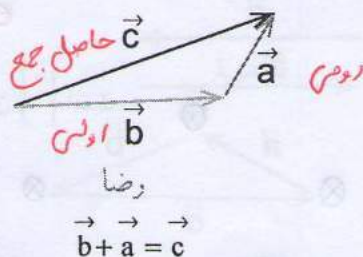 حاصل جمع c
a دومی
اولی b
b + a = c